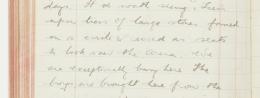 days. It is worth seeing. Seen
upon tiers of large stones formed
in a circle & used as seats
to look over the arena. We
are exceptionally busy here the
boys are brought here from the